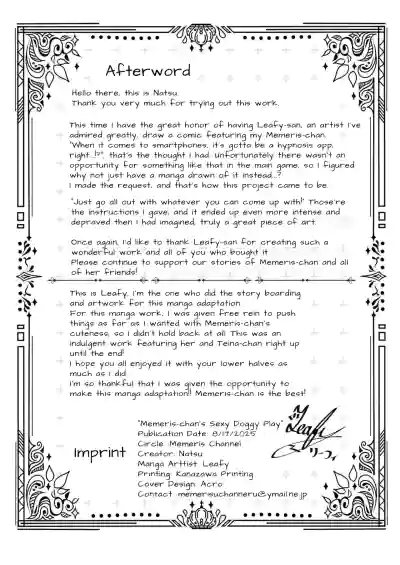 Afterword
Hello there, this is Natsu.
Thank you very much for trying out this work.
This time I have the great honor of having Leafy-san, an artist I've
admired greatly, draw a comic featuring my Memeris-chan.
"When it comes to smartphones, it's gotta be a hypnosis app,
right...!?", that's the thought I had. Unfortunately there wasn't an
opportunity for something like that in the main game, so I figured
why not just have a manga drawn of it instead...?
I made the request, and that's how this project came to be.
"Just go all out with whatever you can come up with!" Those're
the instructions I gave, and it ended up even more intense and
depraved then I had imagined, truly a great piece of art.
Once again, I'd like to thank Leafy-san for creating such a
wonderful work and all of you who bought it.
Please continue to support our stories of Memeris-chan and all
of her friends!
This is Leafy, I'm the one who did the story boarding
and artwork for this manga adaptation.
For this manga work, I was given free rein to push
things as far as I wanted with Memeris-chan's
cuteness, so I didn't hold back at all. This was an
indulgent work featuring her and Teina-chan right up
until the end!
I hope you all enjoyed it with your lower halves as
much as I did.
I'm so thankful that I was given the opportunity to
make this manga adaptation!! Memeris-chan is the best!
Leafy
リーフィ
Imprint
"Memeris-chan's Sexy Doggy Play"
Publication Date: 8/17/2025
Circle: Memeris Channel
Creator: Natsu
Manga Arttist: Leafy
Printing: Kanazawa Printing
Cover Design: Acro
Contact: memerisuchanneru@ymail.ne.jp